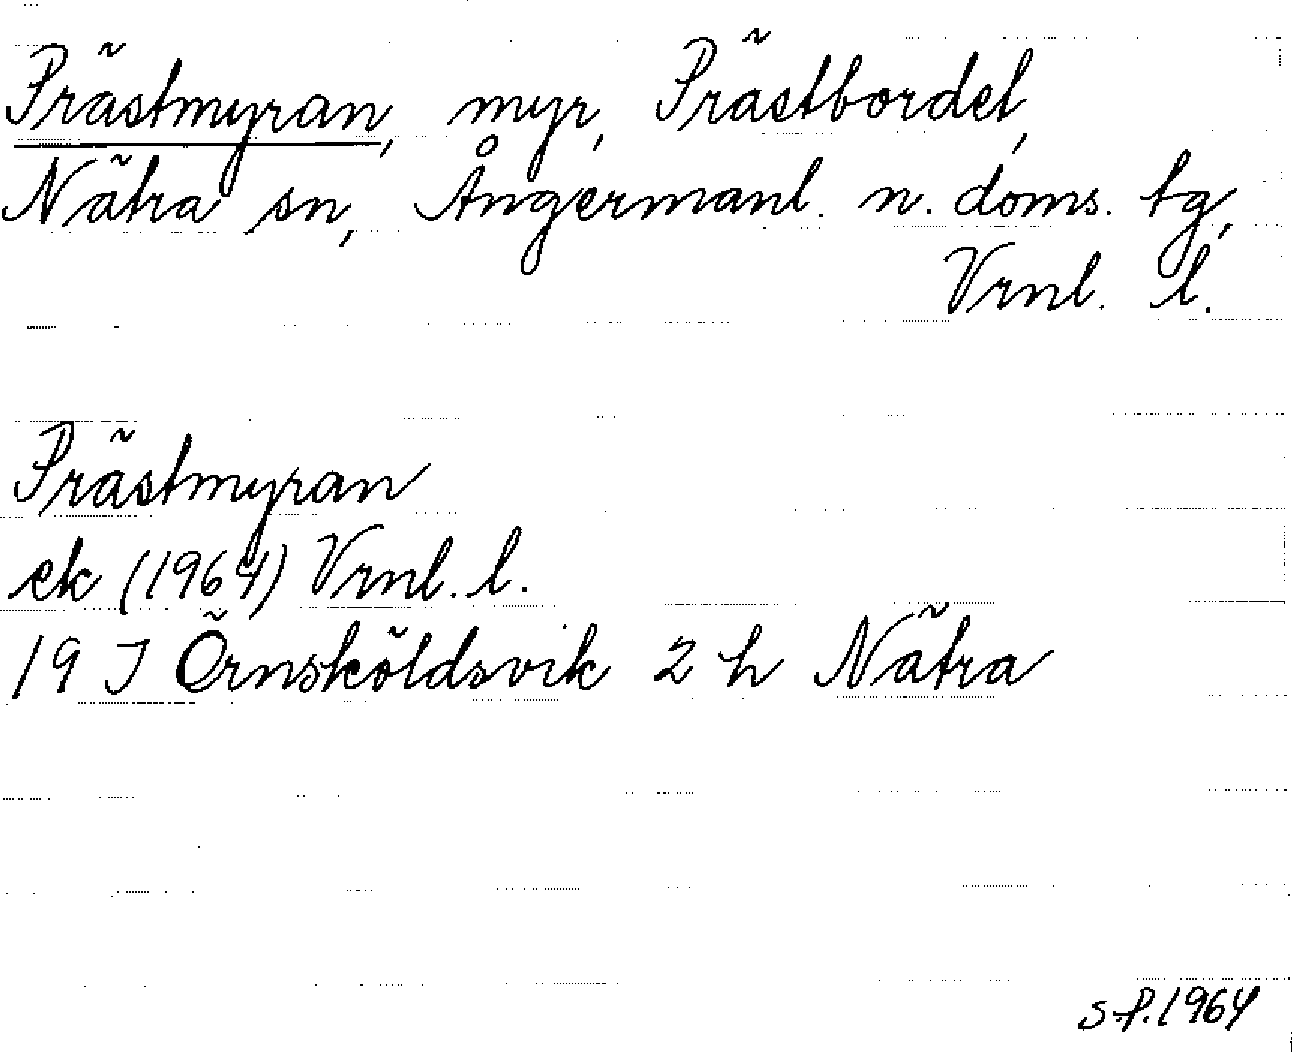 Prästmyran, myr, Prästbordet,
Nätra sn, Ångermanl. n. doms. tg,
Vrnl. l.
Prästmyran
ek (1964) Vrnl. l.
19 J Örnsköldsvik 2 h Nätra
S.P. 1964